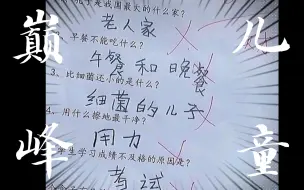 巅峰
儿童
孔子是我国最大的什么家?
老人家
、早餐不能吃什么?
午餐 和 晚餐
3、比细菌还小的是什么?
细菌的儿子
4、用什么擦地最干净?
用力
学生学习成绩不及格的原因是?
考试